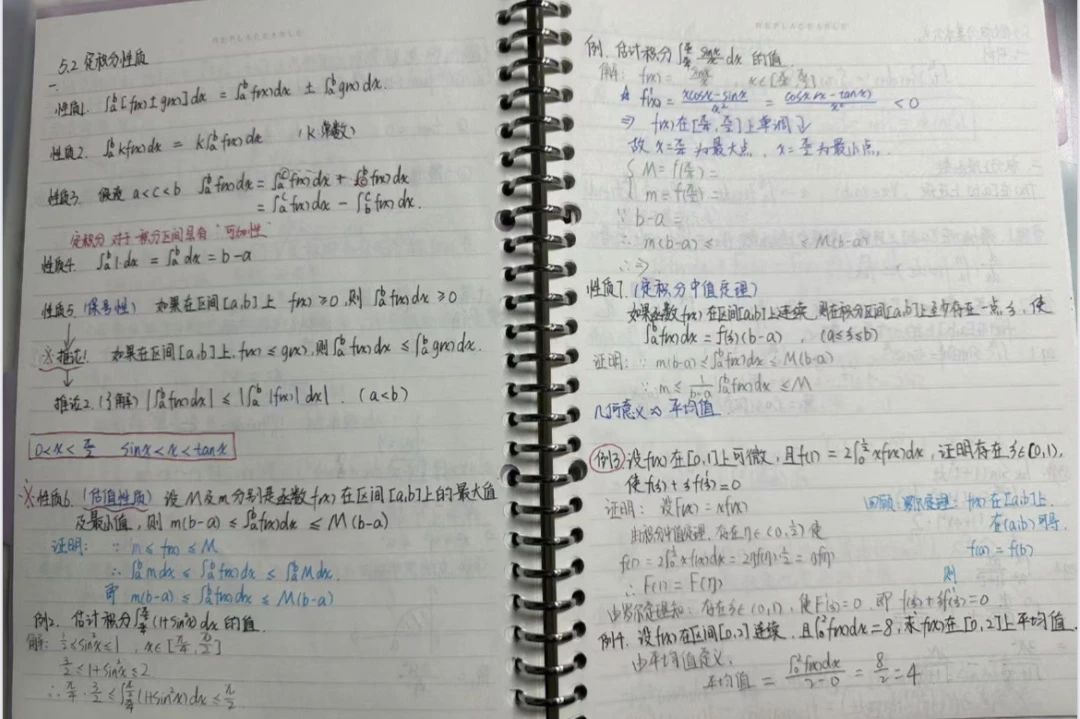 REPLACEABLE
5.2 定积分性质
一.
性质1. ∫ₐᵇ[f(x)±g(x)]dx = ∫ₐᵇf(x)dx ± ∫ₐᵇg(x)dx.
性质2. ∫ₐᵇkf(x)dx = k∫ₐᵇf(x)dx (k常数)
性质3. 假设 a<c<b ∫ₐᵇf(x)dx = ∫ₐᶜf(x)dx + ∫f(x)dx
= ∫ₐᶜf(x)dx - ∫f(x)dx.
定积分对于积分区间具有"可加性"
性质4. ∫ₐᵇ1·dx = ∫ₐᵇdx = b-a
性质5 (保号性) 如果在区间[a,b]上 f(x)≥0, 则 ∫ₐᵇf(x)dx≥0
※推论1 如果在区间[a,b]上, f(x)≤g(x), 则∫ₐᵇf(x)dx ≤ ∫ₐᵇg(x)dx.
推论2. (了解) |∫ₐᵇf(x)dx| ≤ |∫ₐᵇ|f(x)|dx|. (a<b)
0<x<π/2 sinx<x<tanx
※性质6. (估值性质) 设M及m分别是函数f(x)在区间[a,b]上的最大值
及最小值, 则 m(b-a) ≤ ∫ₐᵇf(x)dx ≤ M(b-a)
证明: ∵ m≤f(x)≤M
∴ ∫ₐᵇmdx ≤ ∫ₐᵇf(x)dx ≤ ∫ₐᵇMdx.
即 m(b-a) ≤ ∫ₐᵇf(x)dx ≤ M(b-a)
例2. 估计积分∫(1+sin²x)dx的值.
解: 1/2≤sin²x≤1, x∈[π/4, π/2]
3/2≤1+sin²x≤2
∴ π/4·3/2≤∫(1+sin²x)dx≤π/2
REPLACEABLE
例. 估计积分∫ sinx/x dx 的值.
解: f(x)= sinx/x x∈[]
f'(x)= (xcosx-sinx)/x² = cosx(x-tanx)/x² <0
⇒ f(x)在[]上单调↓
故 x= 为最大点, x= 为最小点.
{ M=f()=
m=f()=
∵ b-a=
∴ m(b-a)≤ ≤M(b-a)
∴⇒
性质7. (定积分中值定理)
如果函数f(x)在区间[a,b]上连续, 则在积分区间[a,b]上至少存在一点ξ, 使
∫ₐᵇf(x)dx = f(ξ)(b-a), (a≤ξ≤b)
证明: ∵ m(b-a)≤∫ₐᵇf(x)dx≤M(b-a)
∴ m≤ 1/(b-a) ∫ₐᵇf(x)dx≤M
几何意义为 平均值
例3 设f(x)在[0,1]上可微, 且f(1)=2∫₀^(1/2) xf(x)dx, 证明存在ξ∈(0,1),
使f(ξ)+ξf'(ξ)=0
证明: 设F(x)=xf(x) 回顾: 罗尔定理: f(x)在[a,b]上.
由积分中值定理, 存在η∈(0,1/2)使 在(a,b)可导.
f(1)=2∫₀^(1/2) xf(x)dx=2ηf(η)·1/2=ηf(η) f(a)=f(b)
∴ F(1)=F(η) 则
由罗尔定理知: 存在ξ∈(0,1), 使F'(ξ)=0 即 f(ξ)+ξf'(ξ)=0
例4. 设f(x)在区间[0,2]连续, 且∫₀²f(x)dx=8, 求f(x)在[0,2]上平均值.
由平均值定义,
平均值 = ∫₀²f(x)dx/(2-0) = 8/2 = 4